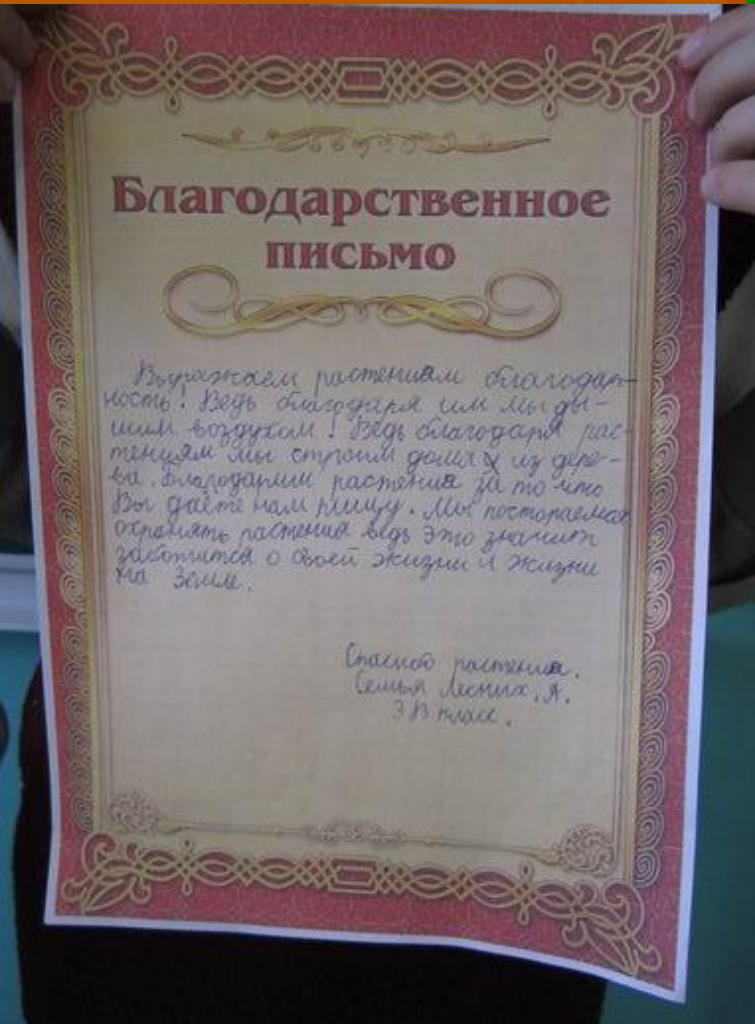 Благодарственное
письмо
Выражаем растениям благодар-
ность! Ведь благодаря им мы ды-
шим воздухом! Ведь благодаря рас-
тениям мы строим дома из дере-
ва. Благодарим растения за то что
Вы даёте нам пищу. Мы постораемся
охранять растения ведь это значит
заботится о своей жизни и жизни
на Земле.
Спасибо растения.
Семья Лесних. А.
3 В класс.